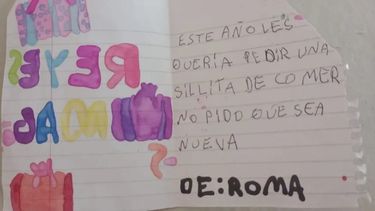 REYES
ESTE AÑO LES
QUERÍA PEDIR UNA
SILLITA DE COMER
NO PIDO QUE SEA
NUEVA
DE:ROMA